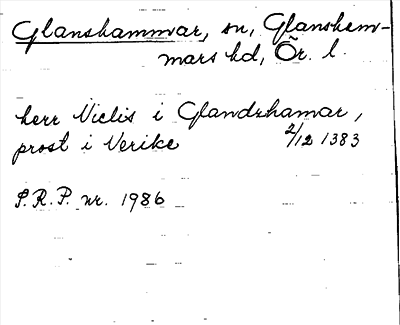 Glanshammar, sn, Glansham-
mars hd, Ör. l.
herr Niclis i Glandzhamar,
prost i Nerike 2/12 1383
S.R.P. nr. 1986